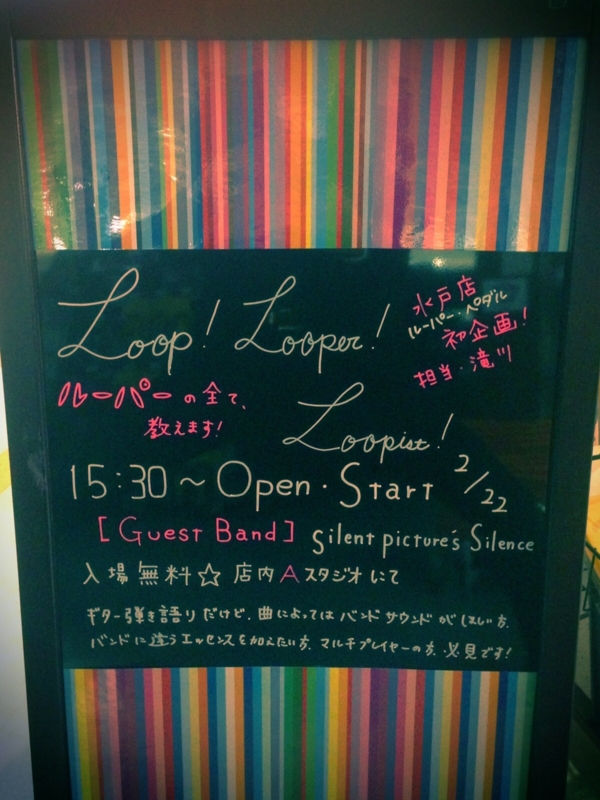 Loop! Looper!
水戸店
ルーパー・ペダル
初企画!
担当・滝川
ルーパーの全て、
教えます!
Loopist!
2/22
15:30~Open・Start
[Guest Band] Silent picture's Silence
入場無料☆店内Aスタジオにて
ギター弾き語りだけど、曲によってはバンドサウンドがほしい方、
バンドに違うエッセンスを加えたい方、マルチプレイヤーの方、必見です!